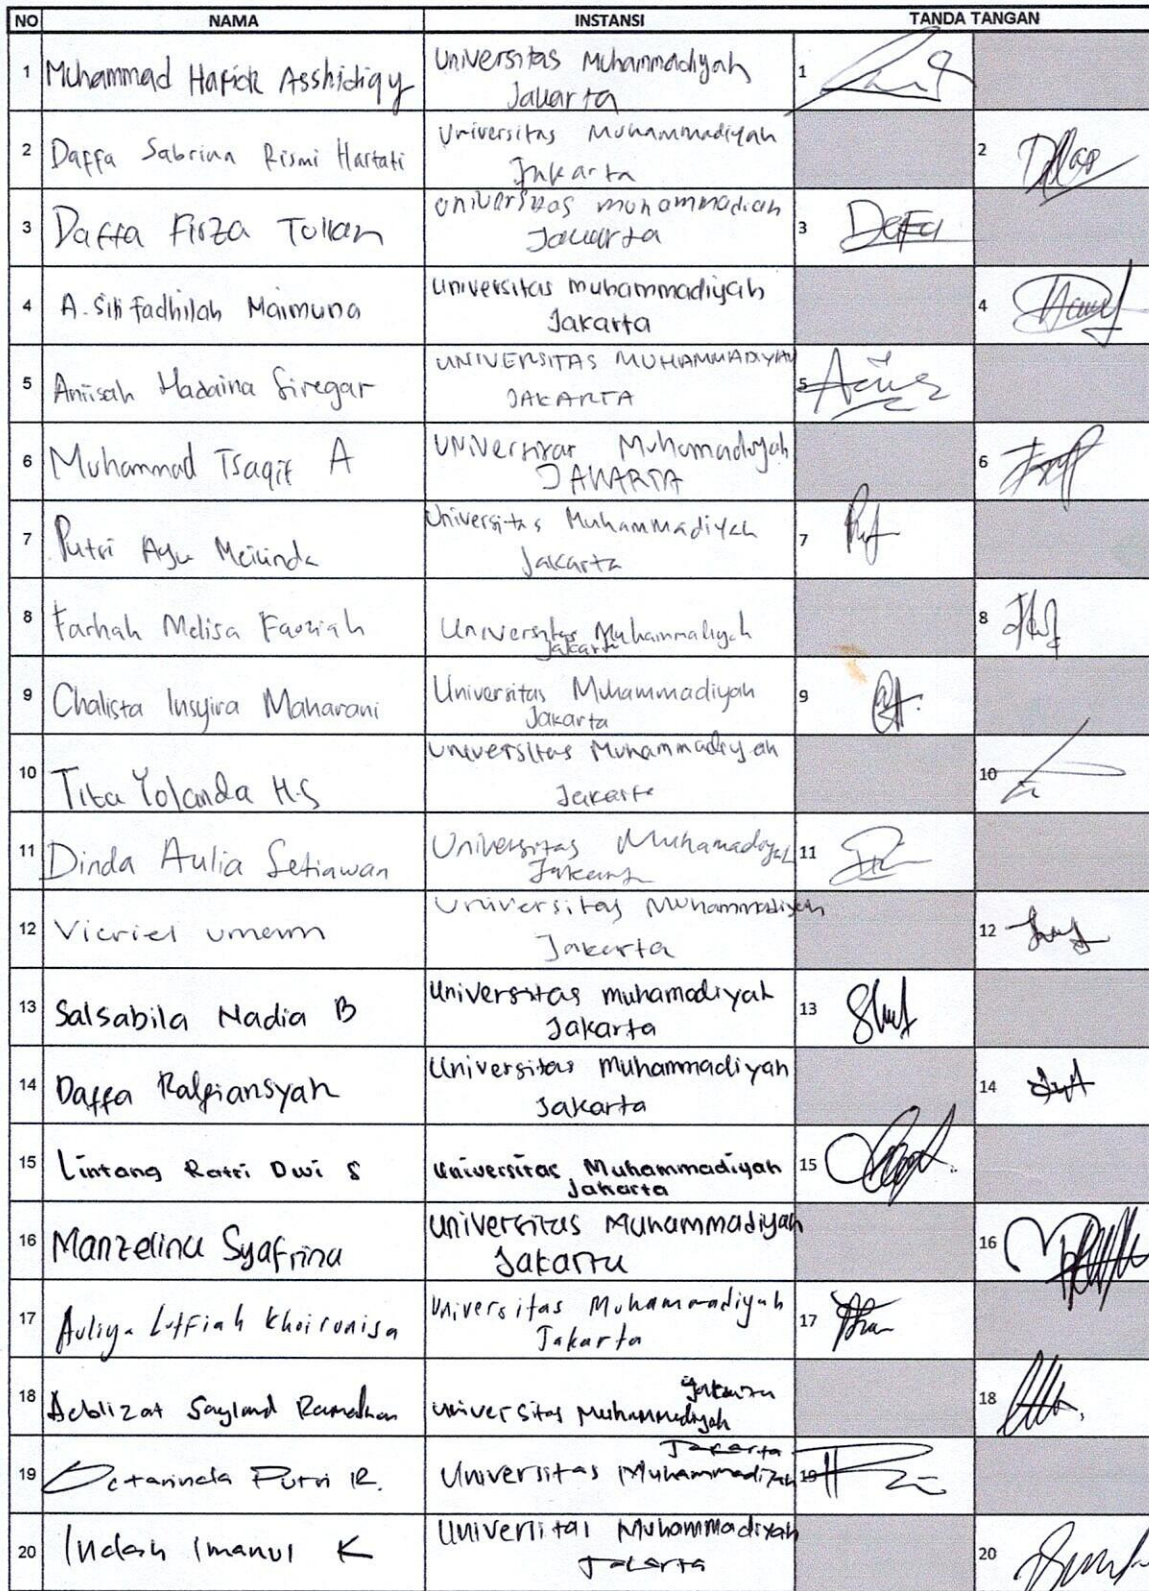 NO NAMA INSTANSI TANDA TANGAN
1 Muhammad Hafick Asshidiqy Universitas Muhammadiyah 1
Jakarta
2 Daffa Sabrina Rismi Hartati Universitas Muhammadiyah 2
Jakarta
3 Daffa Firza Tulian Universitas muhammadiah 3 Daffa
Jakarta
4 A. Siti Fadhilah Maimuna Universitas muhammadiyah 4
Jakarta
5 Aniisah Hadaina Siregar UNIVERSITAS MUHAMMADIYAH 5
JAKARTA
6 Muhammad Tsaqif A UNIVersitar Muhamadiyah 6
JAKARTA
7 Putri Ayu Meilinda Universitas Muhammadiyah 7
Jakarta
8 Farhah Melisa Fauziah Universitas Muhammaliyah 8
Jakarta
9 Chalista Insyira Maharani Universitas Muhammadiyah 9
Jakarta
10 Tita Yolanda H.S Universitas Muhammadiyah 10
Jakarta
11 Dinda Aulia Setiawan Universitas Muhamadiyah 11
Jakarta
12 Vicriel umemn Universitas Muhammadiyah 12
Jakarta
13 Salsabila Nadia B Universitas muhamadiyah 13
Jakarta
14 Daffa Ralfiansyah Universitas Muhammadiyah 14
Jakarta
15 Lintang Ratri Dwi S Universitas Muhammadiyah 15
Jakarta
16 Manzelina Syafrina Universitas Muhammadiyah 16
Jakarta
17 Auliya Lutfiah Khoironisa Universitas Muhammadiyah 17
Jakarta
18 Sayland Ramadhan Universitas Muhammadiyah 18
Jakarta
19 Octarinda Putri R. Universitas Muhammadiyah 19
Jakarta
20 Indah Imanul K Universitas Muhammadiyah 20
Jakarta